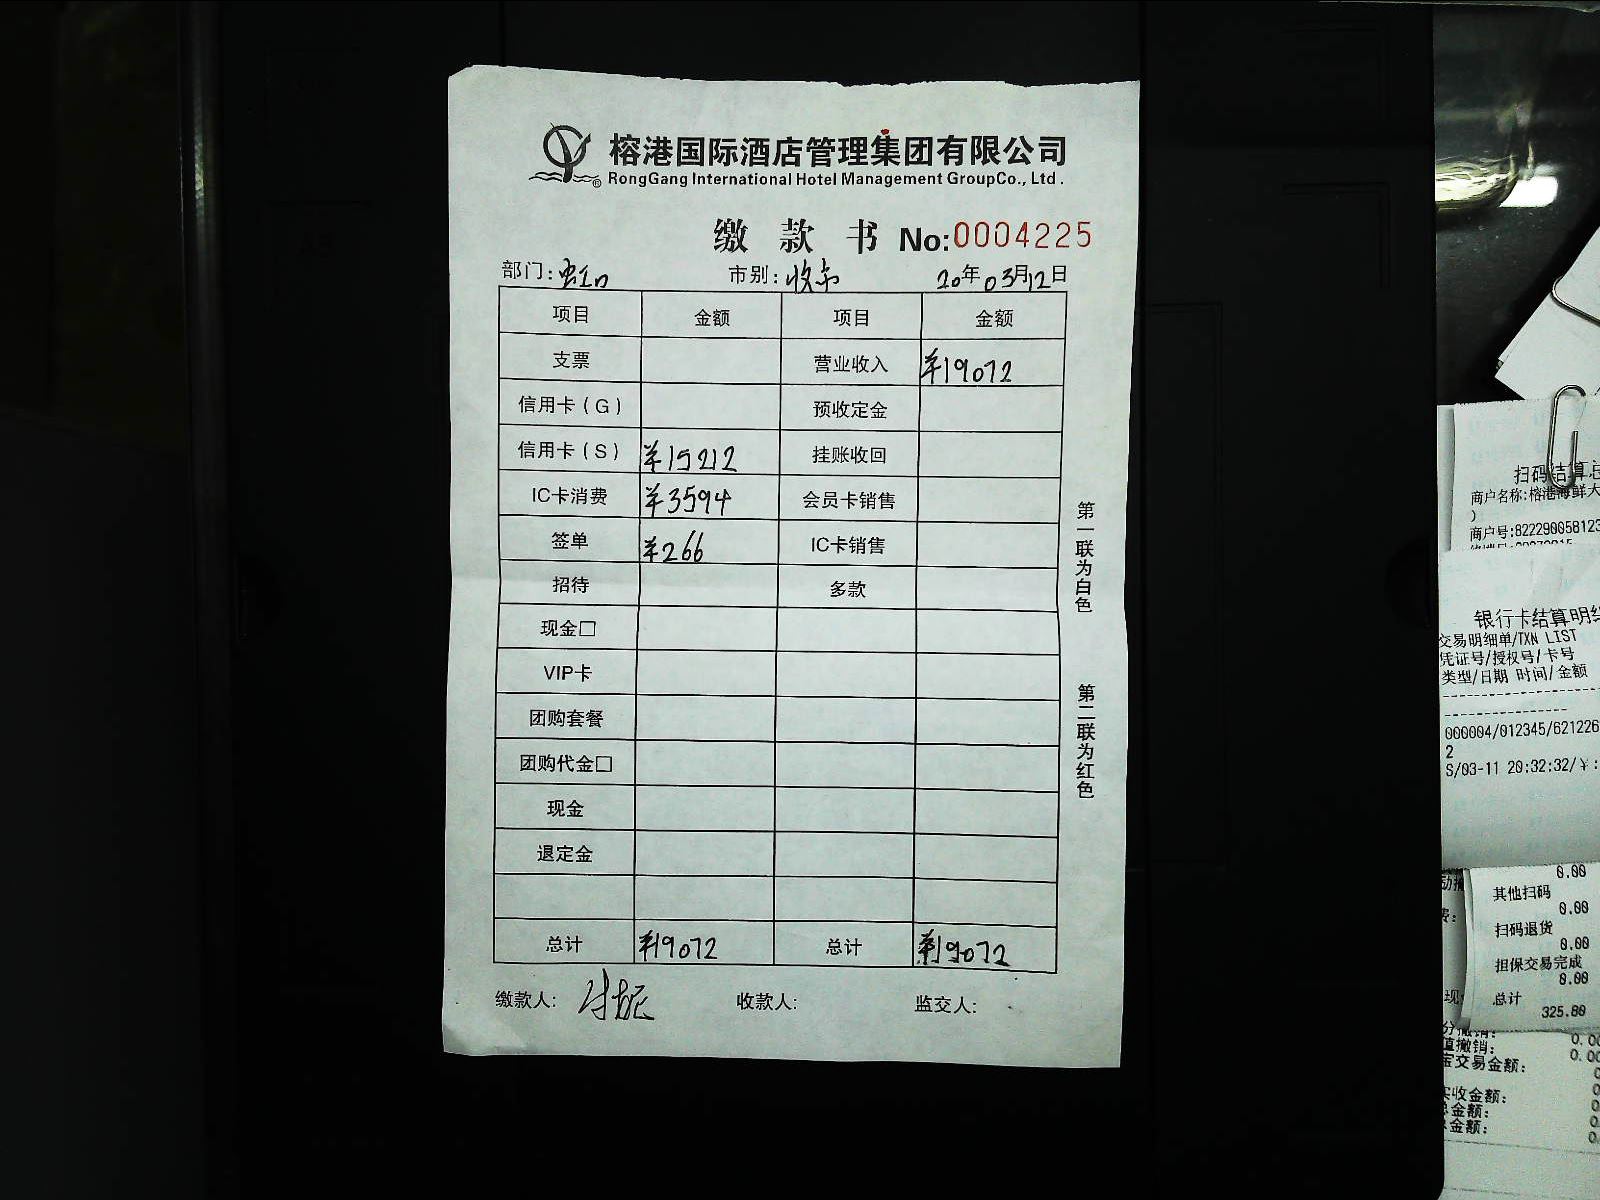 榕港国际酒店管理集团有限公司
RongGang International Hotel Management GroupCo., Ltd.
缴款书 No:0004225
部门:虹口 市别:收市 20年03月12日
项目 金额 项目 金额
支票 营业收入 ¥19072
信用卡(G) 预收定金
信用卡(S) ¥15212 挂账收回
IC卡消费 ¥3594 会员卡销售
签单 ¥266 IC卡销售
招待 多款
现金□
VIP卡
团购套餐
团购代金□
现金
退定金
总计 ¥19072 总计 ¥19072
缴款人: 收款人: 监交人:
第一联为白色
第二联为红色
扫码结算总
商户名称:榕港海鲜大
)
商户号:822290058123
银行卡结算明细
交易明细单/TXN LIST
凭证号/授权号/卡号
类型/日期 时间/金额
000004/012345/621226
2
S/03-11 20:32:32/¥:
0.00
其他扫码
0.00
扫码退货
0.00
担保交易完成
0.00
总计
325.80
值撤销: 0.00
宝交易金额:
实收金额:
总金额:
金额: